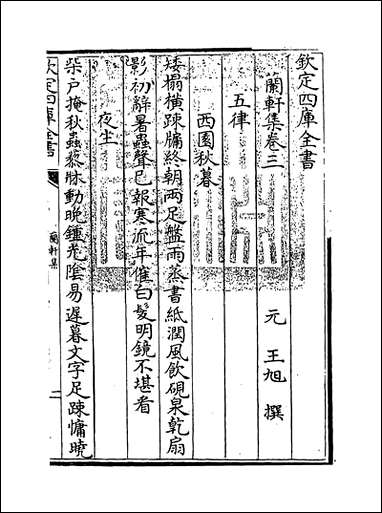 欽定四庫全書
蘭軒集卷三
元　王旭　撰
五律
西園秋暮
矮榻橫疎牖終朝兩足盤雨蒸書紙潤風飲硯泉乾扇
影初辭暑蟲聲已報寒流年催白髮明鏡不堪看
夜坐
柴戶掩秋蟲黎牀動晚鍾光陰易遲暮文字足疎慵曉
欽定四庫全書
蘭軒集